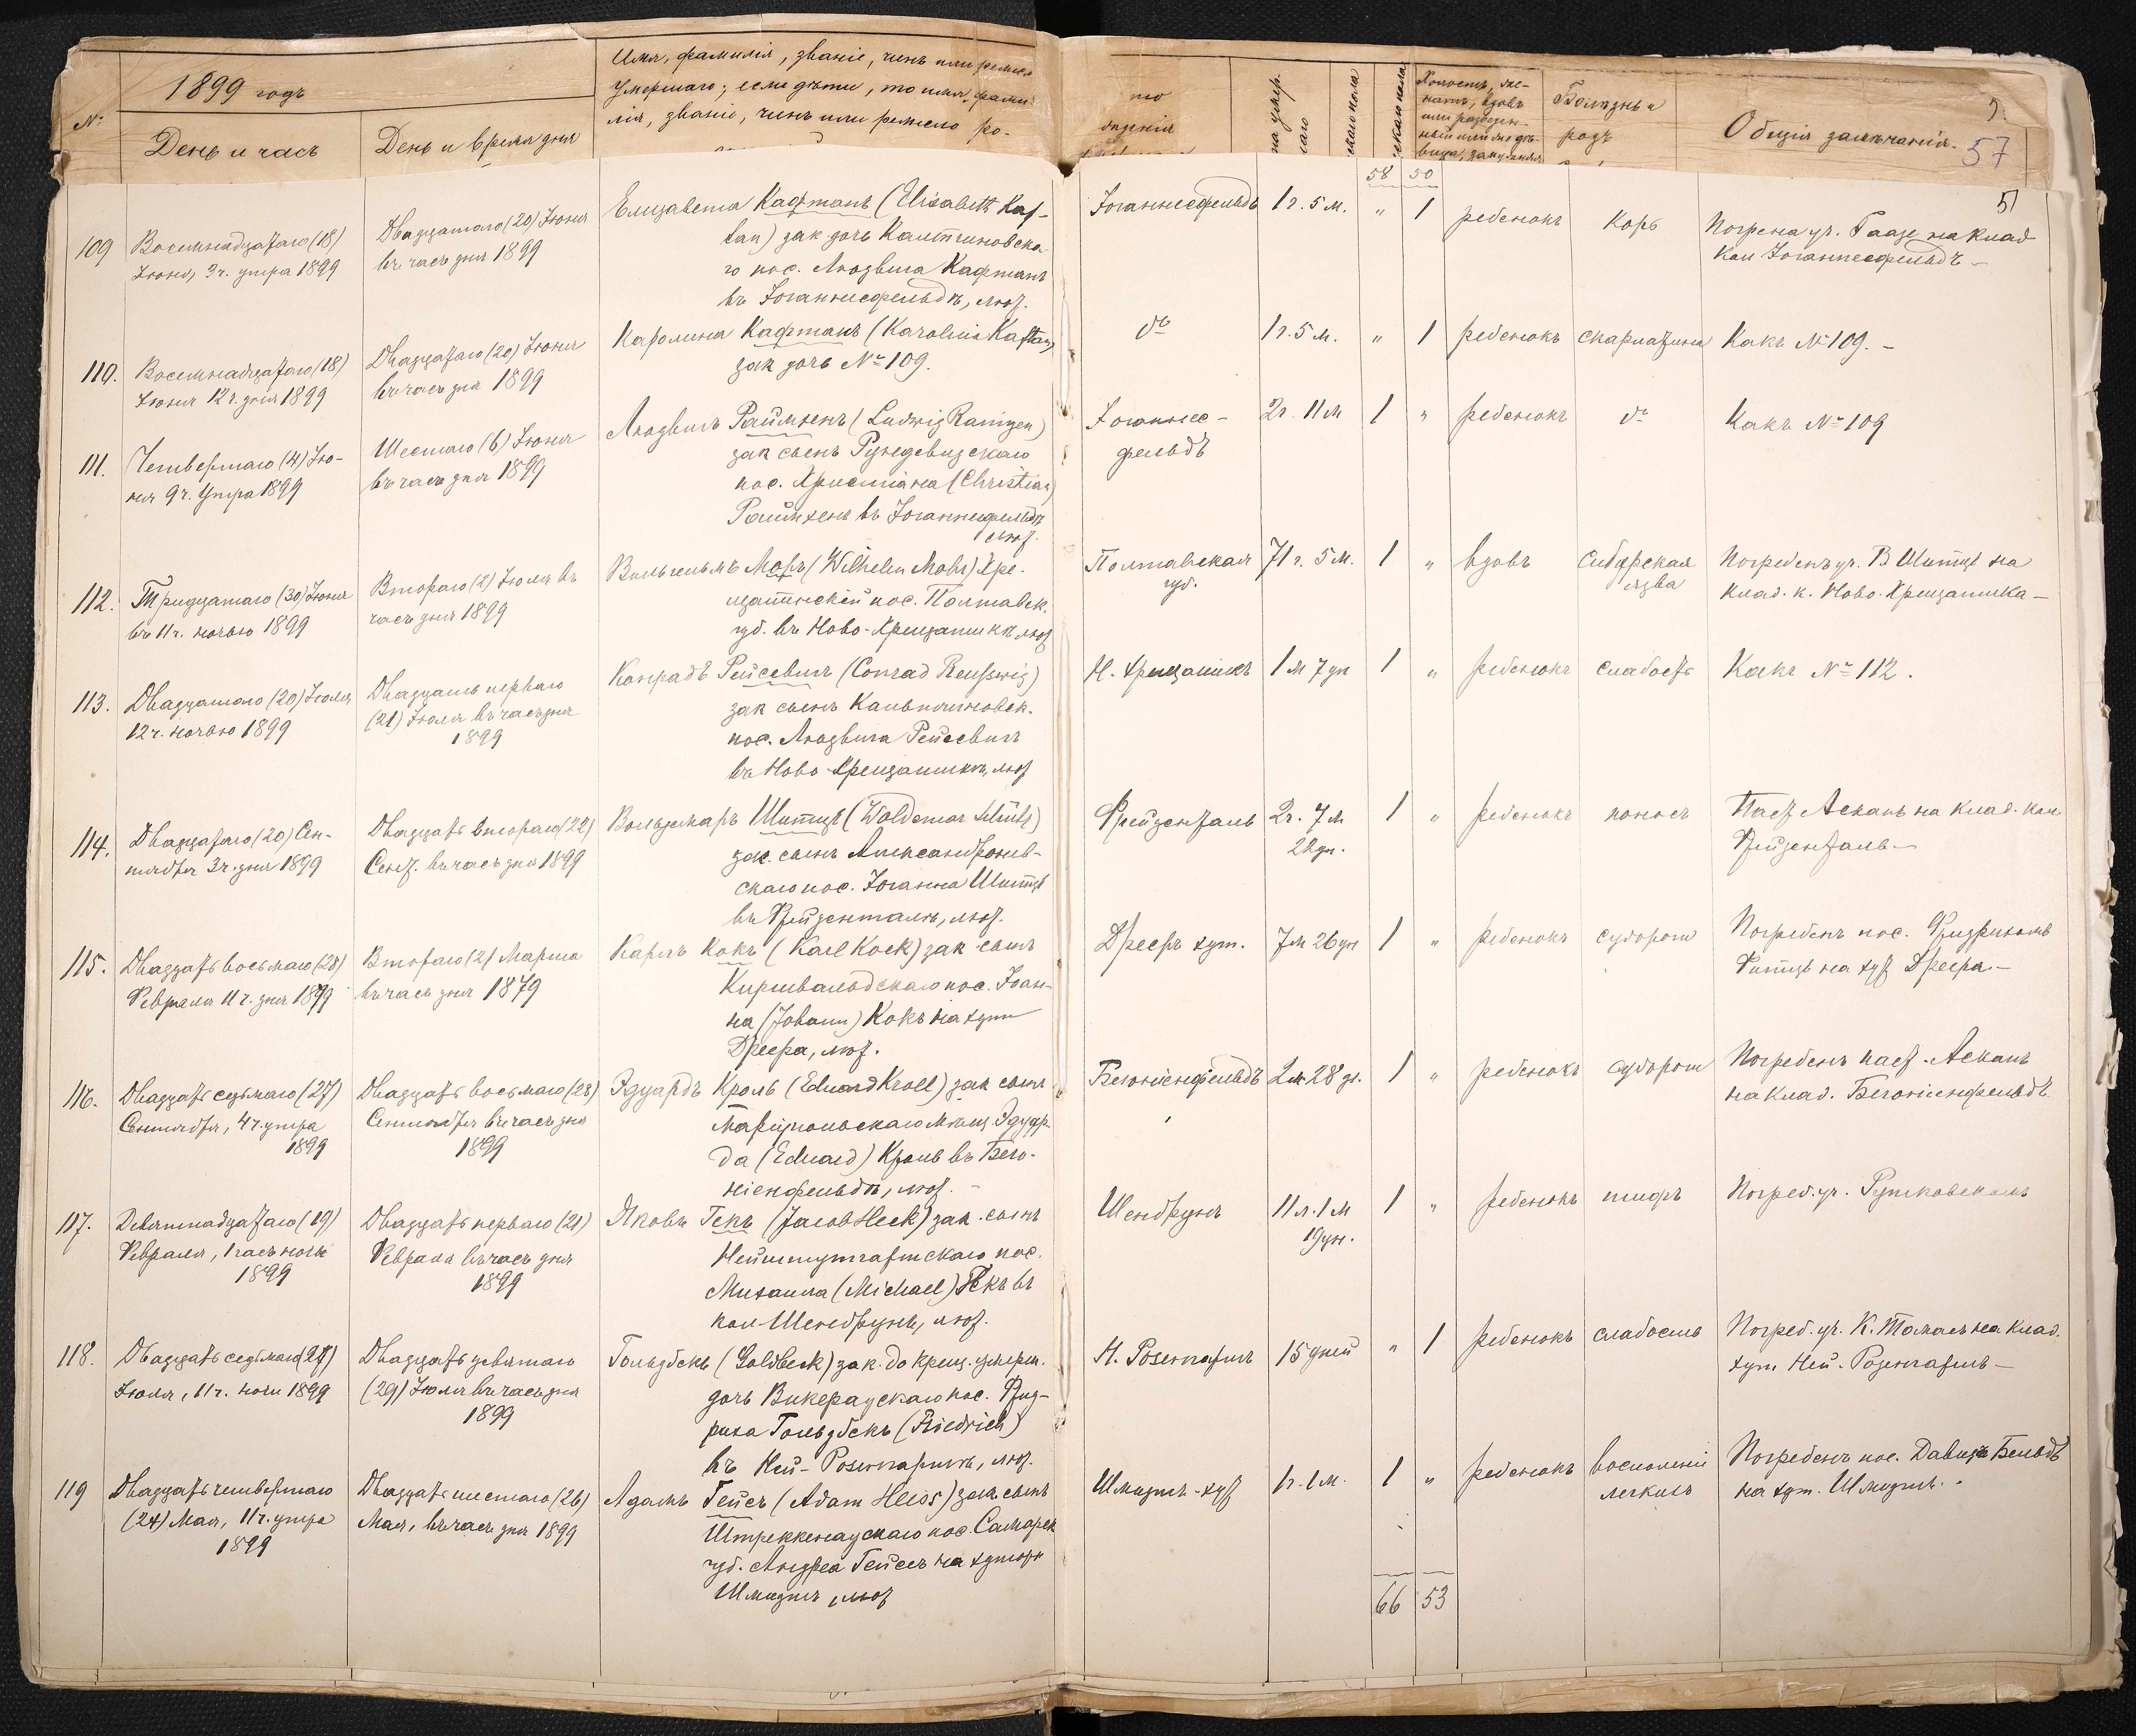 №
1899 годъ
День и часъ
День и время дня
Имя, фамилія, званіе, чинъ или ремесло
умершаго; если дѣти, то имя, фами-
лія, званіе, чинъ или ремесло ро-
Холостъ, же-
натъ, вдовъ
или разведен-
Болѣзнь и
родъ
Общія замѣчанія.
57
58 50
51
109 Восемнадцатаго (18)
Іюня, 3 ч. утра 1899
Двадцатаго (20) Іюня
въ часъ дня 1899
Елизавета Кафтанъ (Elisabeth Kaf-
tan) зак. дочь
го пос. Людвига Кафтанъ
въ Іоганнесфельдѣ, лют.
Іоганнесфельдъ 1 г. 5 м. " 1 ребенокъ корь
Погребена уч. Гаазе на клад
кол Іоганнесфельдъ –
110. Восемнадцатаго (18)
Іюня 12 ч. дня 1899
Двадцатаго (20) Іюня
въ часъ дня 1899
Каролина Кафтанъ (Karolina Kaftan)
зак дочь № 109.
до 1 г. 5 м. " 1 ребенокъ скарлатина Какъ № 109. –
111. Четвертаго (4) Ію-
ня 9 ч. утра 1899
Шестаго (6) Іюня
въ часъ дня 1899
Людвигъ
зак сынъ
пос. Христіана (Christian)
въ Іоганнесфельдѣ
лют.
Іоганнес-
фельдъ
2 г. 11 м 1 " ребенокъ до Какъ № 109
112. Тридцатаго (30) Іюня
въ 11 ч. ночью 1899
Втораго (2) Іюля въ
часъ дня 1899
Вильгельмъ Моръ (Wilhelm Mohr) Хре-
щатинскій пос. Полтавск.
губ. въ Ново-Хрещатикѣ лют
Полтавская
губ.
71 г. 5 м. 1 " вдовъ сибирская
язва
Погребенъ уч. В Шютцъ на
клад. к. Ново-Хрещатика –
113. Двадцатаго (20) Іюля
12 ч. ночью 1899
Двадцать перваго
(21) Іюля въ часъ дня
1899
Конрадъ Рейсвигъ (Conrad Reusswig)
зак сынъ
пос. Людвига Рейсвигъ
въ Ново-Хрещатикѣ, лют
Н. Хрещатикъ 1 м 7 дн 1 " ребенокъ слабость Какъ № 112.
114. Двадцатаго (20) Сен-
тября 3 ч. дня 1899
Двадцать втораго (22)
Сент. въ часъ дня 1899
Вольдемаръ Шютцъ (Woldemar Schütz)
зак. сынъ
скаго пос. Іоганна Шютцъ
въ Фрейденталѣ, лют.
Фрейденталь 2 г. 7 м
22 дн.
1 " ребенокъ поносъ
Паст Асканъ на клад. кол
Фрейденталь –
115. Двадцать восьмаго (28)
Февраля 11 ч. дня 1899
Втораго (2) Марта
въ часъ дня 1879
Карлъ Кокъ (Karl Kock) зак сынъ
Киршвальдскаго пос. Іоан-
на (Johann) Кокъ на хут
Дреера, лют.
Дреера хут. 7 м 26 дн 1 " ребенокъ судороги
Погребенъ пос. Фридрихомъ
на хут Дреера –
116. Двадцать седьмаго (27)
Сентября, 4 ч. утра
1899
Двадцать восьмаго (28)
Сентября въ часъ дня
1899
Эдуардъ Кроль (Eduard Kroll) зак сынъ
Маріупольскаго мѣщ. Эдуар-
да (Eduard) Кроль въ Бего-
ніенфельдѣ, лют. –
Бегоніенфельдъ 2 м. 28 д. 1 " ребенокъ судороги
Погребенъ паст. Асканъ
на клад. Бегоніенфельдъ.
117. Девятнадцатаго (19)
Февраля, 1 часъ ночи
1899
Двадцать перваго (21)
Февраля въ часъ дня
1899
Яковъ Гекъ (Jacob Heck) зак. сынъ
Нейштутгартскаго пос.
Михаила (Michael) Гекъ въ
кол Шенбрунъ, лют.
Шенбрунъ 11 л. 1 м
19 дн.
1 " ребенокъ тифъ Погреб. уч. Рутковскимъ
118. Двадцать седьмаго (27)
Іюля, 11 ч. ночи 1899
Двадцать девятаго
(29) Іюля въ часъ дня
1899
Гольдбекъ (Goldbeck) зак. до крещ. умерш.
дочь Викераускаго пос. Фрид-
риха Гольдбекъ (Friedrich)
въ Ней-Розенгартѣ, лют.
Н. Розенгартъ 15 дней " 1 ребенокъ слабость
Погреб. уч. К. Томасъ на клад.
хут Ней-Розенгартъ –
119 Двадцать четвертаго
(24) Мая, 11 ч. утра
1899
Двадцать шестаго (26)
Мая, въ часъ дня 1899
Адамъ Гейсъ (Adam Heiss) зак сынъ
Штреккенаускаго пос. Самарск
губ. Андрея Гейсъ на хуторѣ
Шмидтъ, лют
Шмидтъ-хут 1 г. 1 м. 1 " ребенокъ воспаленіе
легкихъ
Погребенъ пос. Давидъ Бельдъ
на хут. Шмидтъ.
66 53